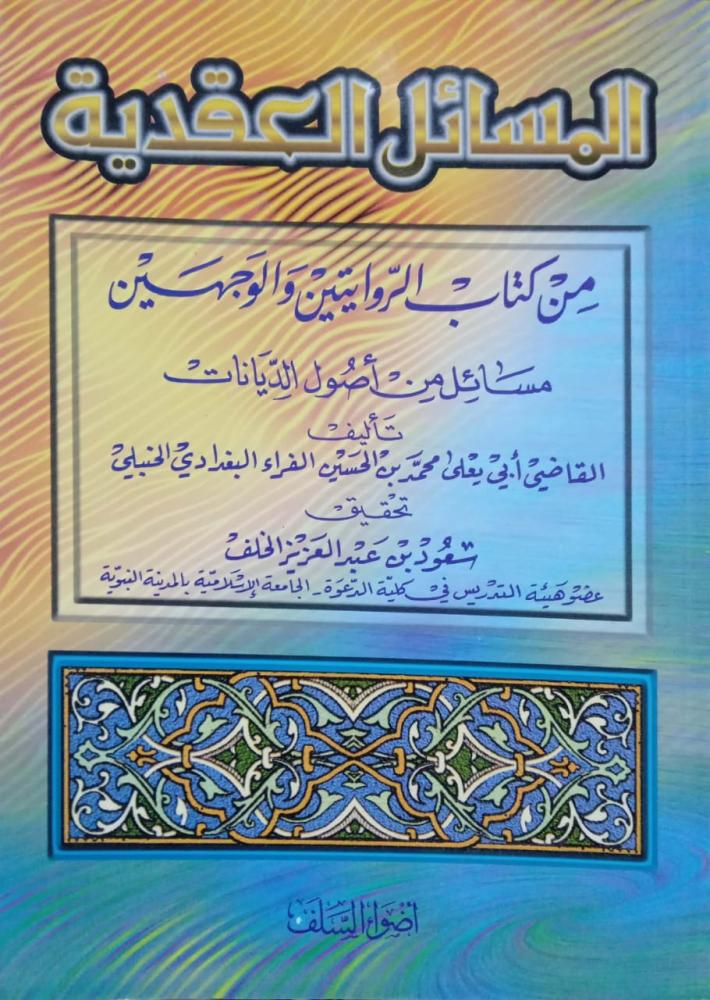 المسائل العقدية
مِنْ كتَاب الرّوايتين وَالوَجهَين
مسَائِل مِن أصُول الدِّيَانَات
تَأليف
القاضي أبي يعلى محمّد بن الحسَين الفراء البغدادي الحنبلي
تحقيق
سُعُود بن عَبد العَزيز الخلف
عضو هَيئة التدريس في كلية الدّعوَة - الجامعة الإسْلاميّة بالمدينة النبويّة
أضوَاء السَّلَف